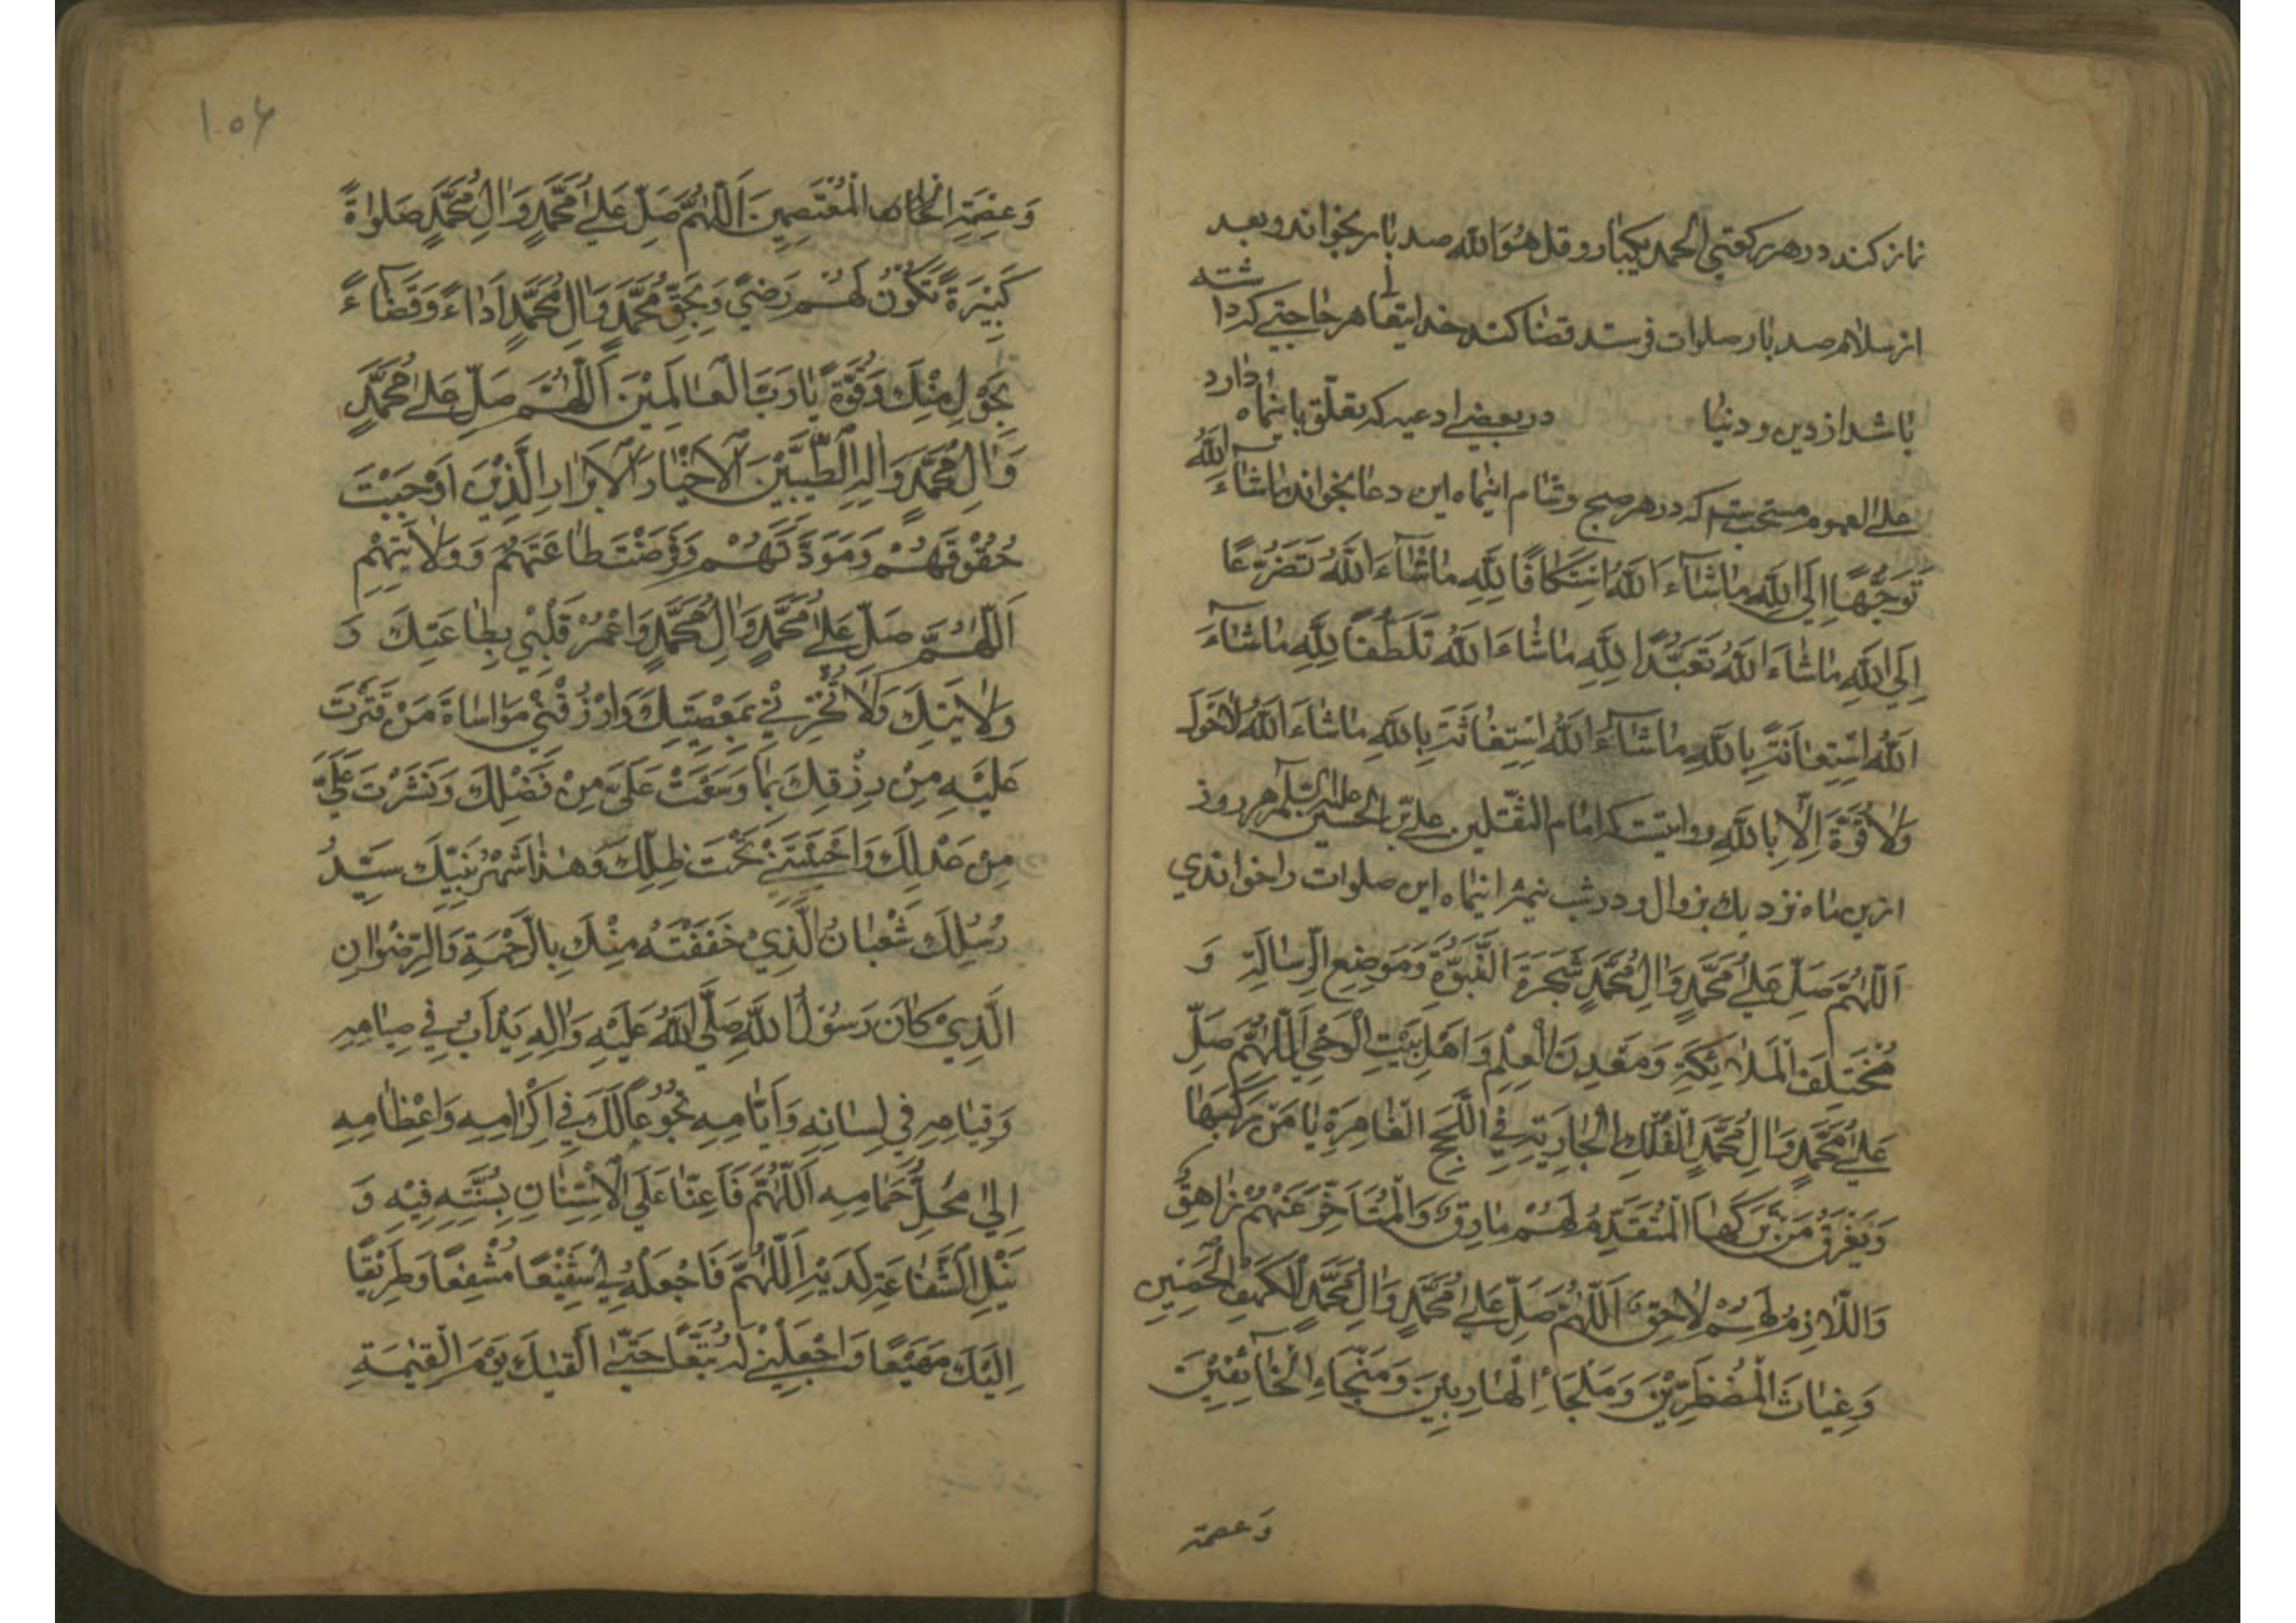 نماز کند در هر رکعتی الحمد یکبار و قل هُوَ الله صد بار بخواند و بعد
از سلام صد بار صلوات فرستد قضا کند خدایتعالی هر حاجتی که داشته
باشد از دین و دنیا در بعضی ادعیه که تعلّق باینماه دارد
علی العموم مستحبست که در هر صبح و شام اینماه این دعا بخواند ماشَآءَ اللهُ
تَوَجُّهًا اِلَی اللهِ ماشَآءَ اللهُ اسْتِکافًا لِلّهِ ماشَآءَ اللهُ تَضَرُّعًا
اِلَی اللهِ ماشَاءَ اللهُ تَعَبُّدًا لِلّهِ ماشَاءَ اللهُ تَلَطُّفًا لِلّهِ ماشَآءَ
اللهُ اسْتِعانَةً بِاللهِ ماشَآءَ اللهُ اسْتِغاثَةً بِاللهِ ماشَاءَ اللهُ لاحَوْلَ
وَلا قُوَّةَ اِلّا بِاللهِ روایتست که امام الثقلین علیّ بن الحسین علیه السّلم هر روز
ازین ماه نزدیك بزوال و در شب نیمه اینماه این صلوات را خواندی
اَللّهُمَّ صَلِّ عَلی مُحَمَّدٍ وَالِ مُحَمَّدٍ شَجَرَةِ النُّبُوَّةِ وَمَوْضِعِ الرِّسالَةِ وَ
مُخْتَلَفِ الْمَلائِکَةِ وَمَعْدِنِ الْعِلْمِ وَاَهْلِ بَیْتِ الْوَحْیِ اَللّهُمَّ صَلِّ
عَلی مُحَمَّدٍ وَالِ مُحَمَّدٍ الْفُلْكِ الْجارِیَةِ فِی اللُّجَجِ الْغامِرَةِ یامَنْ مَنْ رَکِبَها
وَیَغْرَقُ مَنْ تَرَکَهَا الْمُتَقَدِّمُ لَهُمْ مارِقٌ وَالْمُتَاَخِّرُ عَنْهُمْ زاهِقٌ
وَاللّازِمُ لَهُمْ لاحِقٌ اَللّهُمَّ صَلِّ عَلی مُحَمَّدٍ وَالِ مُحَمَّدٍ الْکَهْفِ الْحَصینِ
وَغِیاثِ الْمُضْطَرّینَ وَمَلْجَاِ الْهارِبینَ وَمَنْجاءِ الْخآئِفینَ
وَعصمة
۱۰۶
وَعِصْمَةِ الْمُعْتَصِمینَ اَللّهُمَّ صَلِّ عَلی مُحَمَّدٍ وَالِ مُحَمَّدٍ صَلوةً
کَثیرَةً تَکُونُ لَهُمْ رِضیً وَبِحَقِّ مُحَمَّدٍ وَالِ مُحَمَّدٍ اَداءً وَقَضآءً
بِحَوْلٍ مِنْكَ وَقُوَّةٍ یارَبَّ الْعالَمینَ اَللّهُمَّ صَلِّ عَلی مُحَمَّدٍ
وَالِ مُحَمَّدٍ وَالِهِ الطَّیِّبینَ الْاَخْیارِ الْاَبْرارِ الَّذینَ اَوْجَبْتَ
حُقُوقَهُمْ وَمَوَدَّتَهُمْ وَفَرَضْتَ طاعَتَهُمْ وَوِلایَتَهُمْ
اَللّهُمَّ صَلِّ عَلی مُحَمَّدٍ وَالِ مُحَمَّدٍ وَاعْمُرْ قَلْبی بِطاعَتِكَ وَ
وِلایَتِكَ وَلاتُخْزِنی بِمَعْصِیَتِكَ وَارْزُقْنی مَواساةَ مَنْ قَتَّرْتَ
عَلَیْهِ مِنْ رِزْقِكَ بِما وَسَّعْتَ عَلَیَّ مِنْ فَضْلِكَ وَنَشَرْتَ عَلَیَّ
مِنْ عَدْلِكَ وَاَحْیَیْتَنی تَحْتَ ظِلِّكَ وَهذا شَهْرُ نَبِیِّكَ سَیِّدِ
رُسُلِكَ شَعْبانُ الَّذی حَفَفْتَهُ مِنْكَ بِالرَّحْمَةِ وَالرِّضْوانِ
الَّذی کانَ رَسُولُ اللهِ صَلَّی اللهُ عَلَیْهِ وَالِهِ یَدْاَبُ فی صِیامِهِ
وَقِیامِهِ فی لِسانِهِ وَاَیّامِهِ بُخُوعًا لَكَ فی اِکْرامِهِ وَاعْظامِهِ
اِلی مَحَلِّ حَمامِهِ اَللّهُمَّ فَاَعِنّا عَلَی الْاِسْتِنانِ بِسُنَّتِهِ فیهِ وَ
نَیْلِ الشَّفاعَةِ لَدَیْهِ اَللّهُمَّ فَاجْعَلْهُ لی شَفیعًا مُشْفِعًا وَطَریقًا
اِلَیْكَ مَهْیَعًا وَاجْعَلْنی لَهُ مُتَّبِعًا حَتّی اَلْقیكَ یَوْمَ الْقِیمَةِ